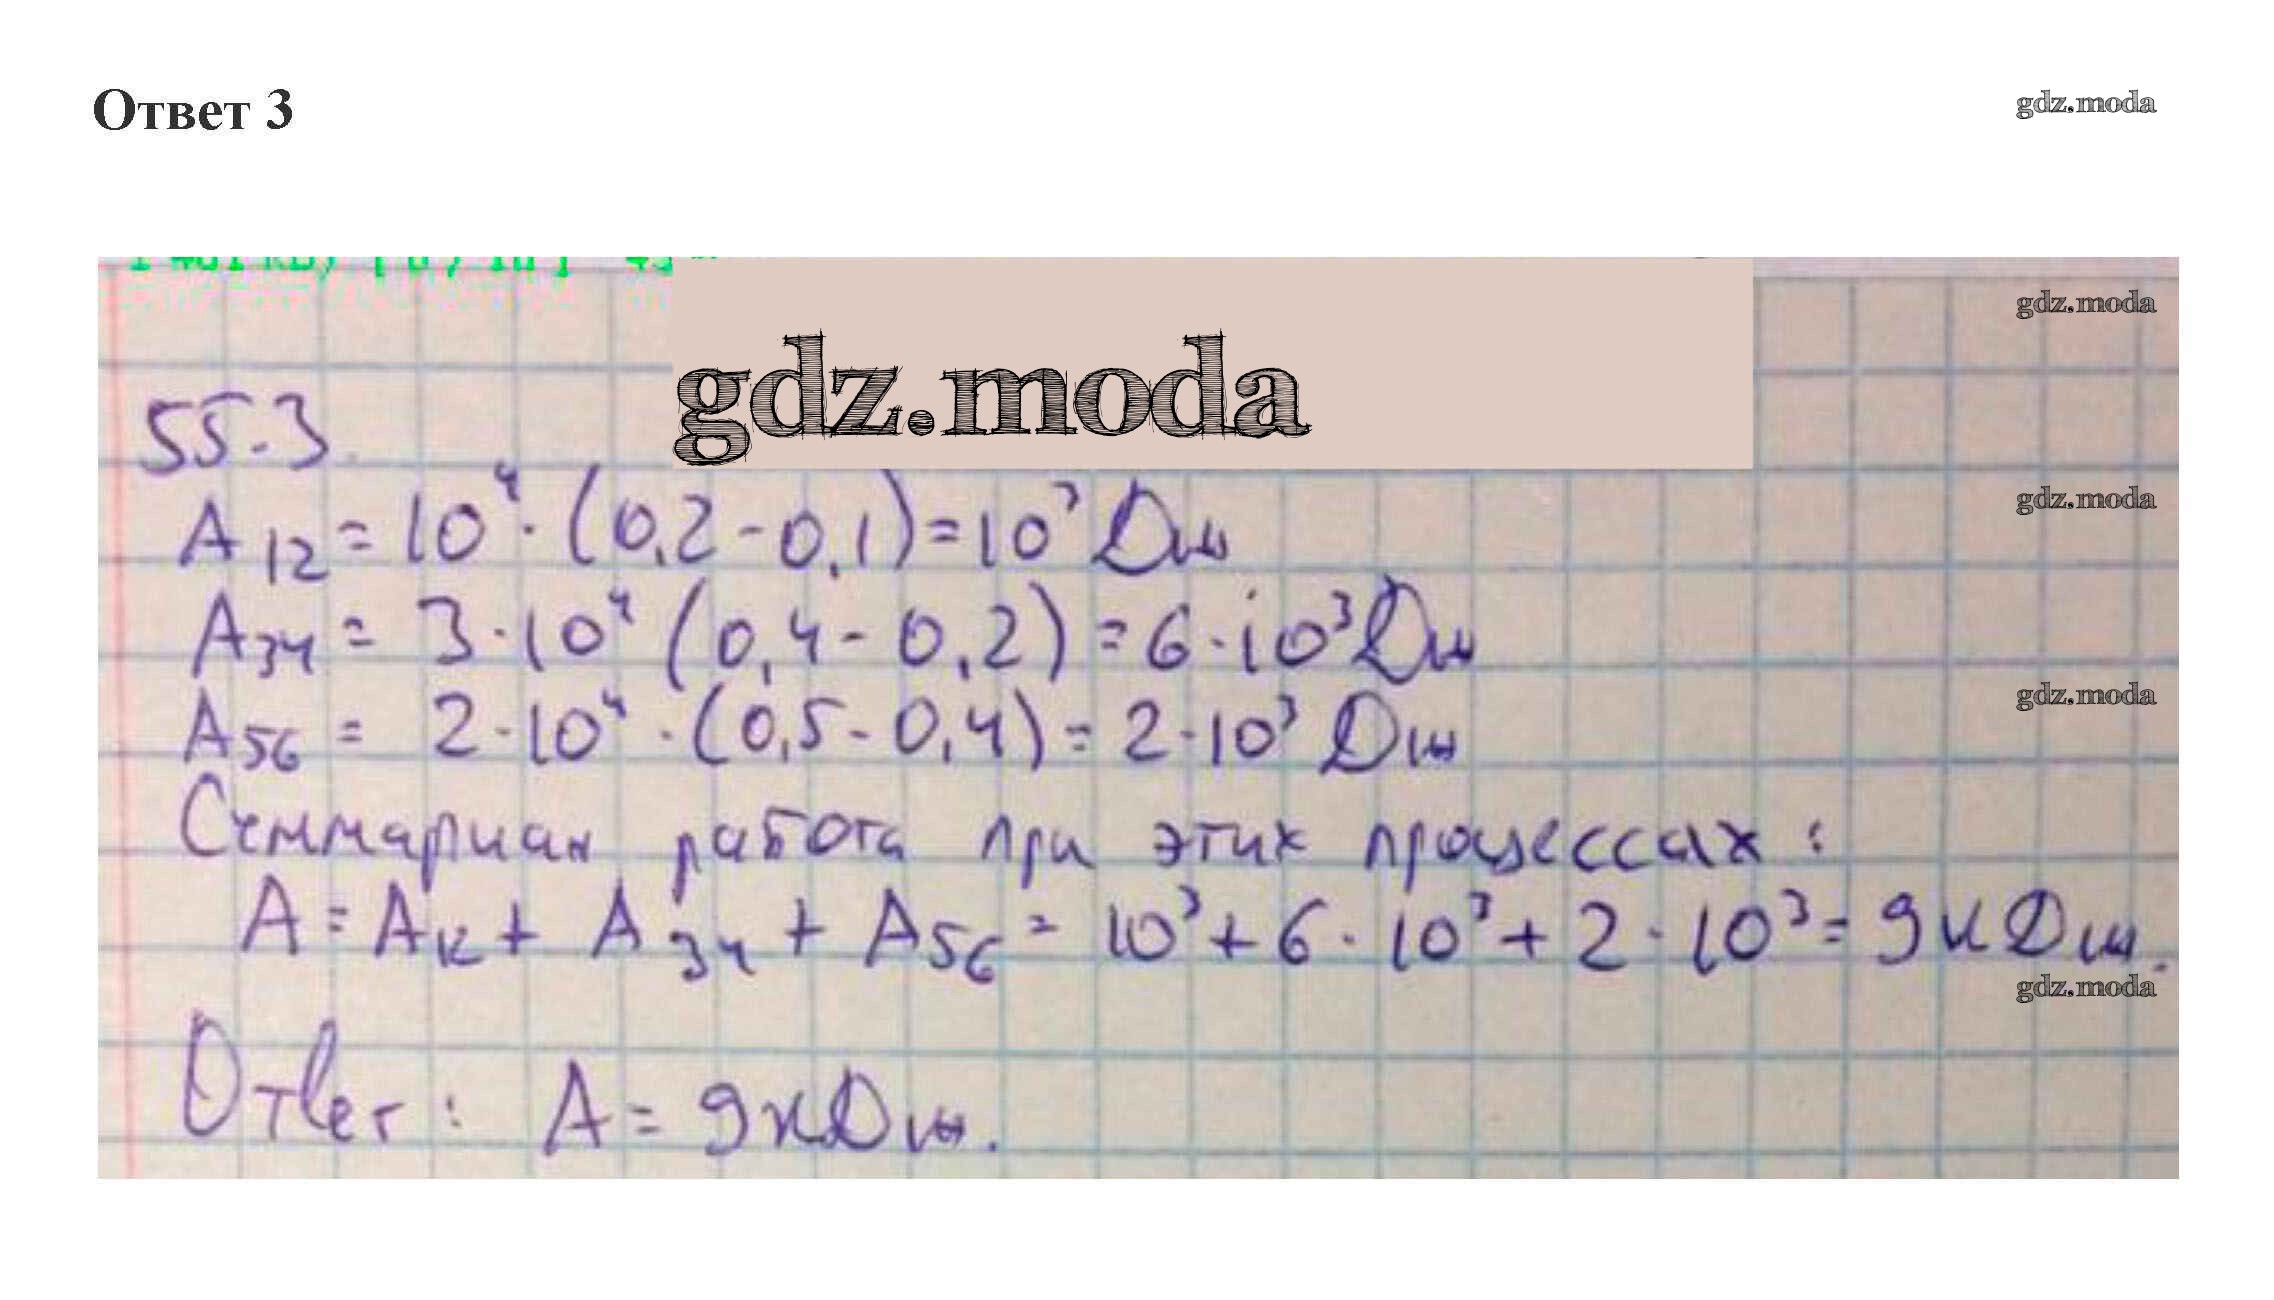 Ответ 3
gdz.moda
gdz.moda
gdz.moda
55.3.
A₁₂ = 10⁴ · (0,2 - 0,1) = 10³ Дж
gdz.moda
A₃₄ = 3 · 10⁴ (0,4 - 0,2) = 6 · 10³ Дж
A₅₆ = 2 · 10⁴ · (0,5 - 0,4) = 2 · 10³ Дж
gdz.moda
Суммарная работа при этих процессах:
A = A₁₂ + A₃₄ + A₅₆ = 10³ + 6 · 10³ + 2 · 10³ = 9 кДж.
gdz.moda
Ответ: A = 9 кДж.